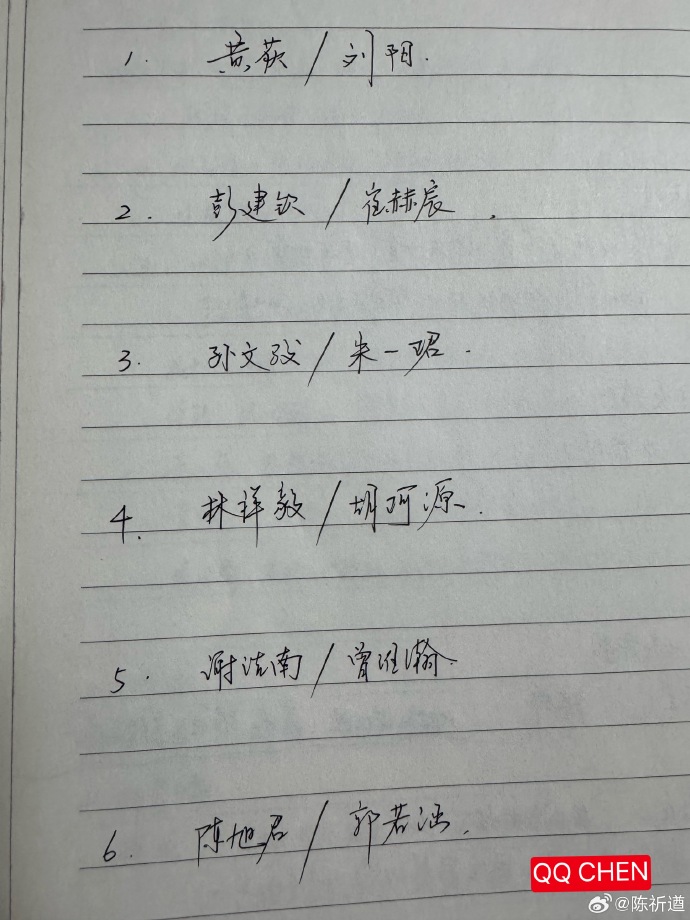 1. 黄荻/刘阳.
2. 彭建钦/崔赫辰.
3. 孙文孜/朱一珺.
4. 林祥毅/胡珂源.
5. 谢浩南/曾维瀚.
6. 陈旭君/郭若涵.
QQ CHEN
@陈祈遒